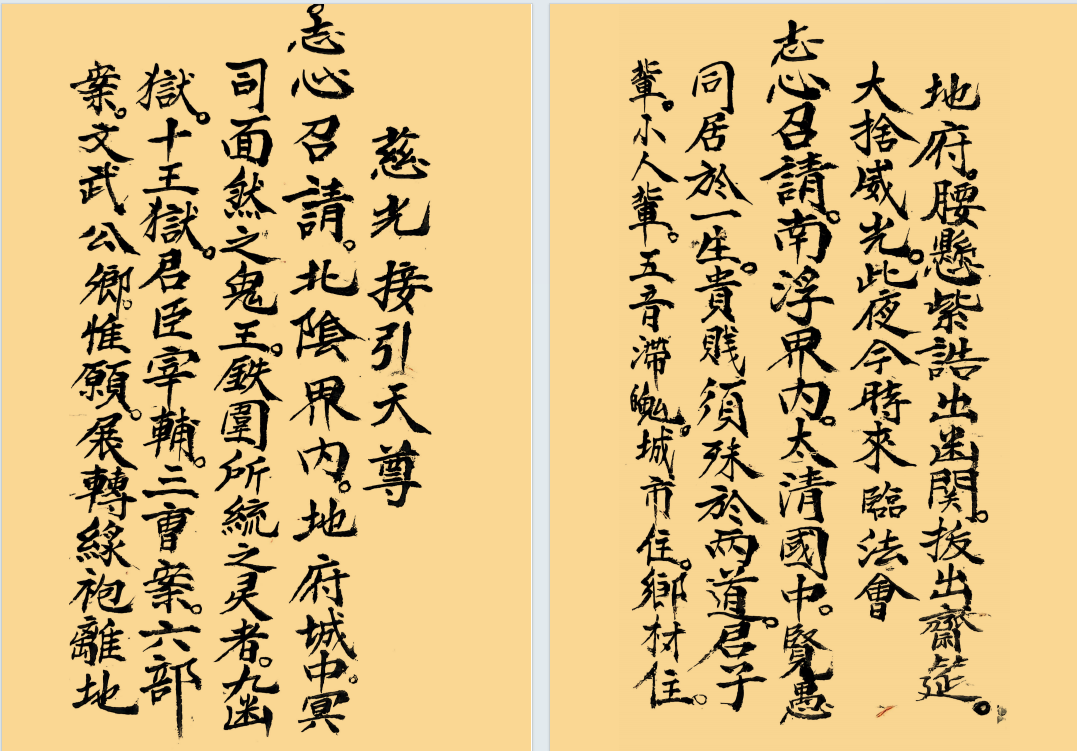 慈光接引天尊
志心召請。北陰界内。地府城中。冥
司面然之鬼王。鉄圍所統之灵者。九幽
獄。十王獄。君臣宰輔。三曹案。六部
案。文武公鄉。惟願。展轉緑袍離地
地府。腰懸紫誥出幽関。拔出齋筵。
大捨威光。此夜今時來臨法會
志心召請。南浮界内。太清國中。賢愚
同居於一生。貴賎須殊於两道。君子
輩。小人輩。五音滯魄。城市住。鄉材住。